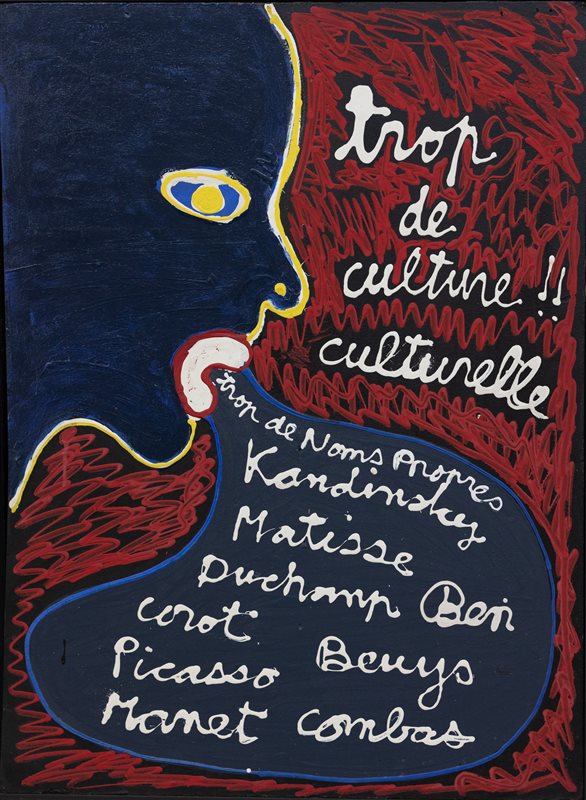 trop
de
culture !!
culturelle
trop de Noms propres
Kandinsky
Matisse
Duchamp Ben
Corot
Picasso Beuys
Manet Combas